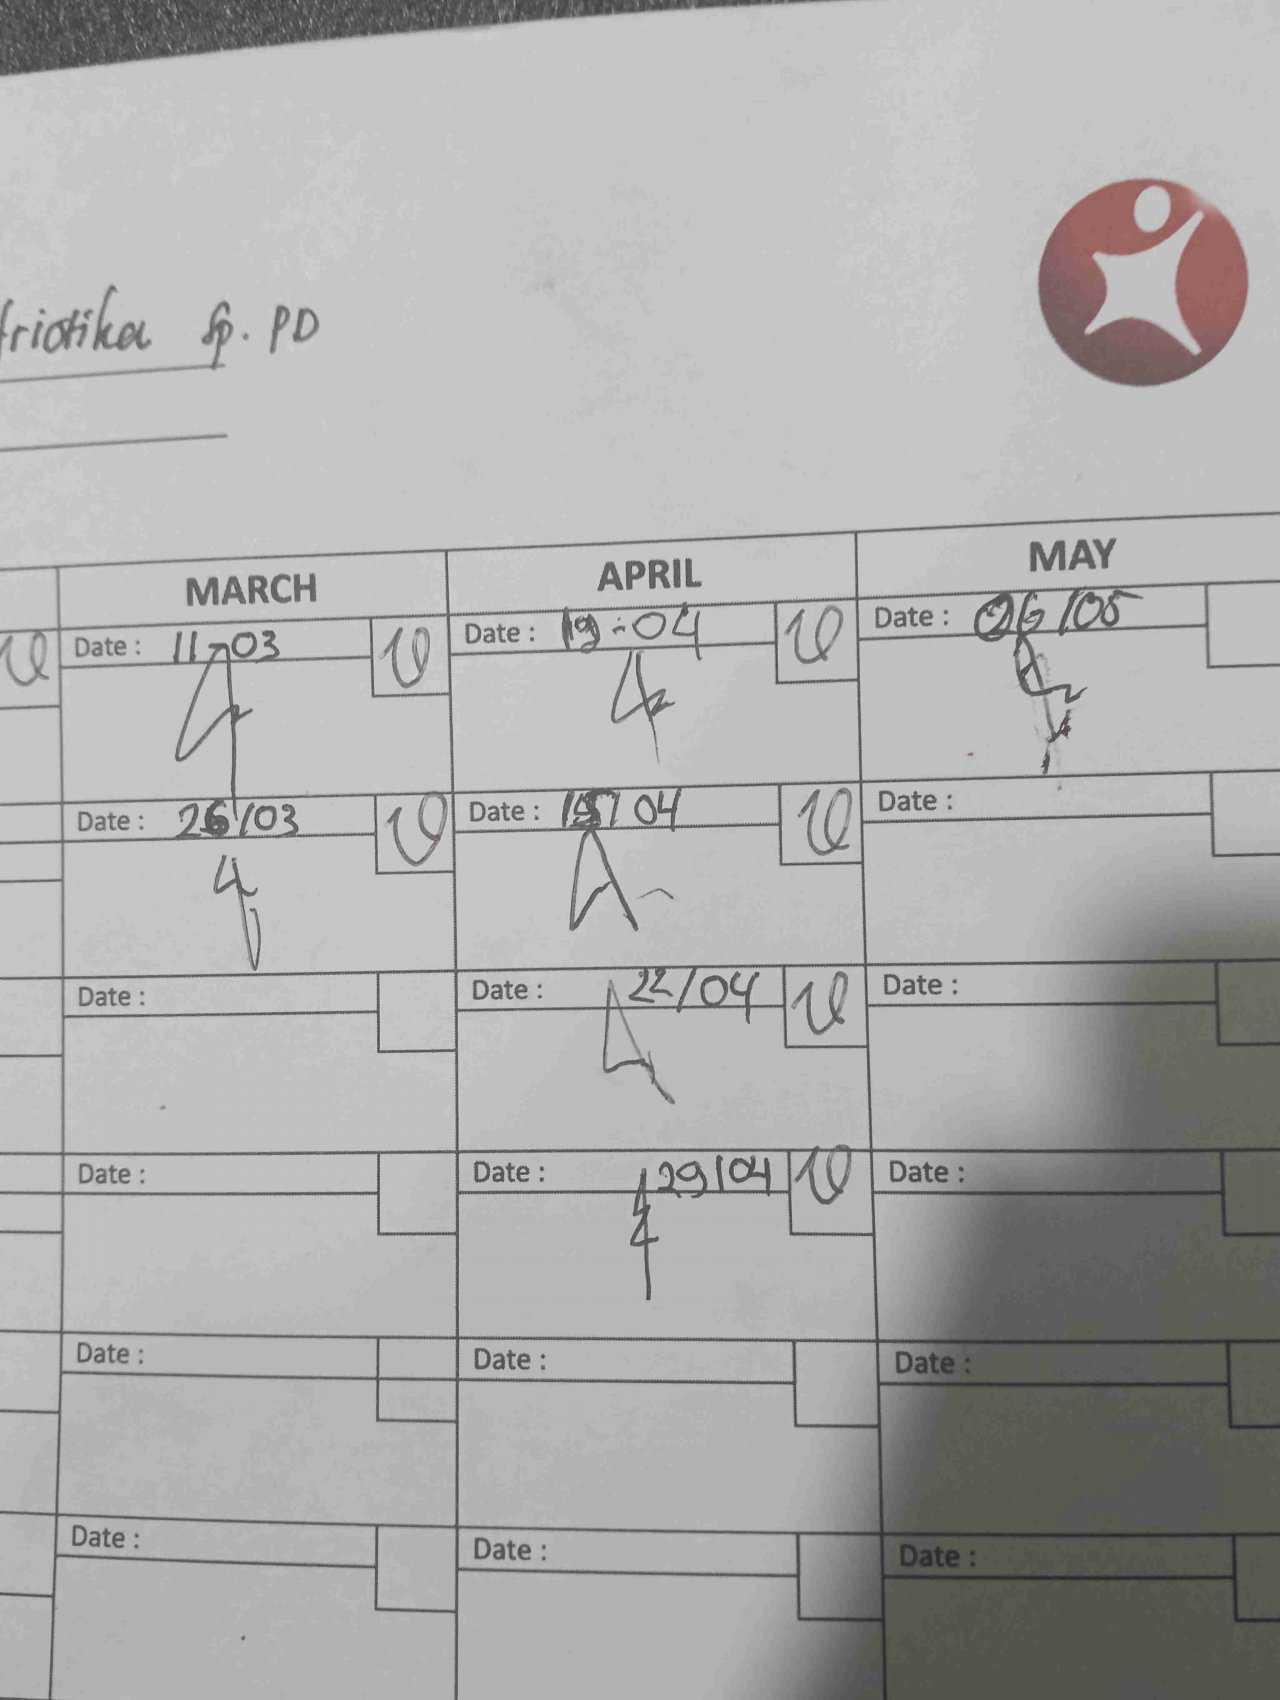 Sp. PD
MARCH APRIL MAY
Date : 11-03 Date : Date : 06/05
Date : 26/03 Date : 15/04 Date :
Date : Date : 22/04 Date :
Date : Date : 29/04 Date :
Date : Date : Date :
Date : Date : Date :